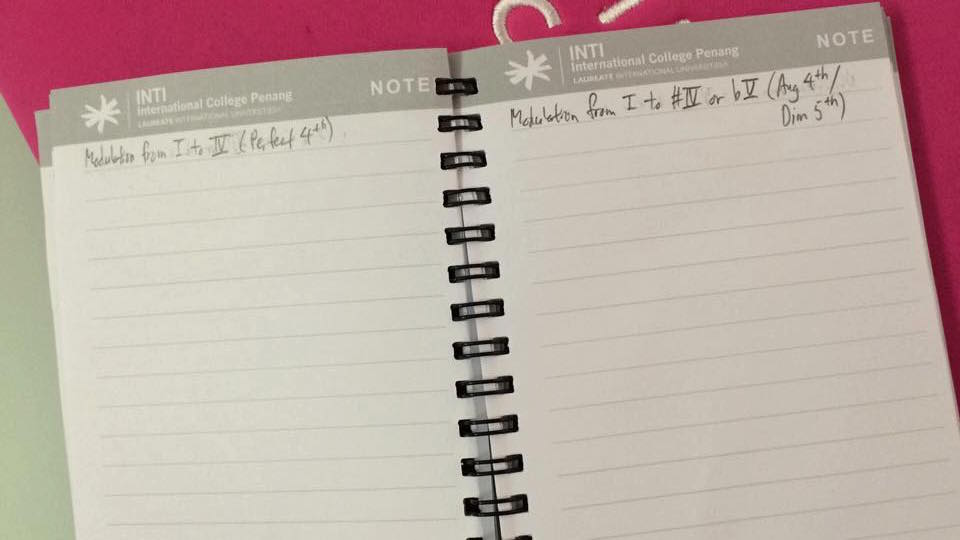 INTI
International College Penang
LAUREATE INTERNATIONAL UNIVERSITIES
NOTE
Modulation from I to IV (Perfect 4th)
INTI
International College Penang
LAUREATE INTERNATIONAL UNIVERSITIES
NOTE
Modulation from I to #IV or bV (Aug 4th/
Dim 5th)